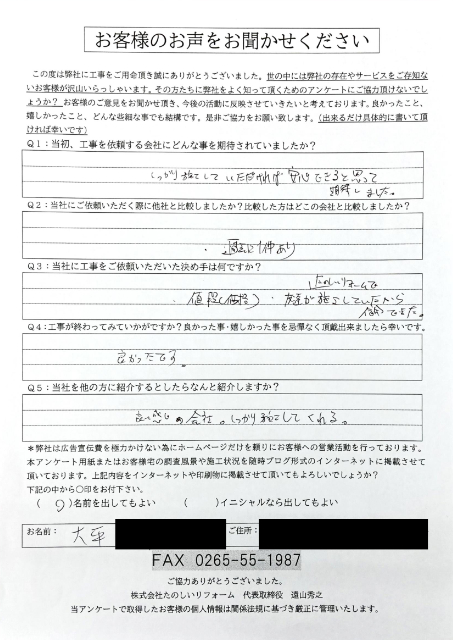 お客様のお声をお聞かせください
この度は弊社に工事をご用命頂き誠にありがとうございました。世の中には弊社の存在やサービスをご存知な
いお客様が沢山いらっしゃいます。その方たちに弊社をよく知って頂くためのアンケートにご協力頂けないでし
ょうか？お客様のご意見をお聞かせ頂き、今後の活動に反映させていきたいと考えております。良かったこと、
嬉しかったこと、どんな些細な事でも結構です。是非ご協力をお願い致します。（出来るだけ具体的に書いて頂
ければ幸いです）
Q1：当初、工事を依頼する会社にどんな事を期待されていましたか？
しっかり施工していただければ安心できると思って
期待しました。
Q2：当社にご依頼いただく際に他社と比較しましたか？比較した方はどこの会社と比較しましたか？
・過去に1件あり
Q3：当社に工事をご依頼いただいた決め手は何ですか？
たのしいリフォームで
・値段(価格)・友達が施工していたから
信頼できた。
Q4：工事が終わってみていかがですか？良かった事・嬉しかった事を忌憚なく頂戴出来ましたら幸いです。
良かったです。
Q5：当社を他の方に紹介するとしたらなんと紹介しますか？
良い感じの会社。しっかり施工してくれる。
＊弊社は広告宣伝費を極力かけない為にホームページだけを頼りにお客様への営業活動を行っております。
本アンケート用紙またはお客様宅の調査風景や施工状況を随時ブログ形式のインターネットに掲載させて
頂いております。上記内容をインターネットや印刷物に掲載させて頂いてもよろしいでしょうか？
下記の中から〇印をお付下さい。
（ ○ ）名前を出してもよい （ ）イニシャルなら出してもよい
お名前： 大平 ご住所：
FAX 0265-55-1987
ご協力ありがとうございました。
株式会社たのしいリフォーム 代表取締役 遠山秀之
当アンケートで取得したお客様の個人情報は関係法規に基づき厳正に管理いたします。